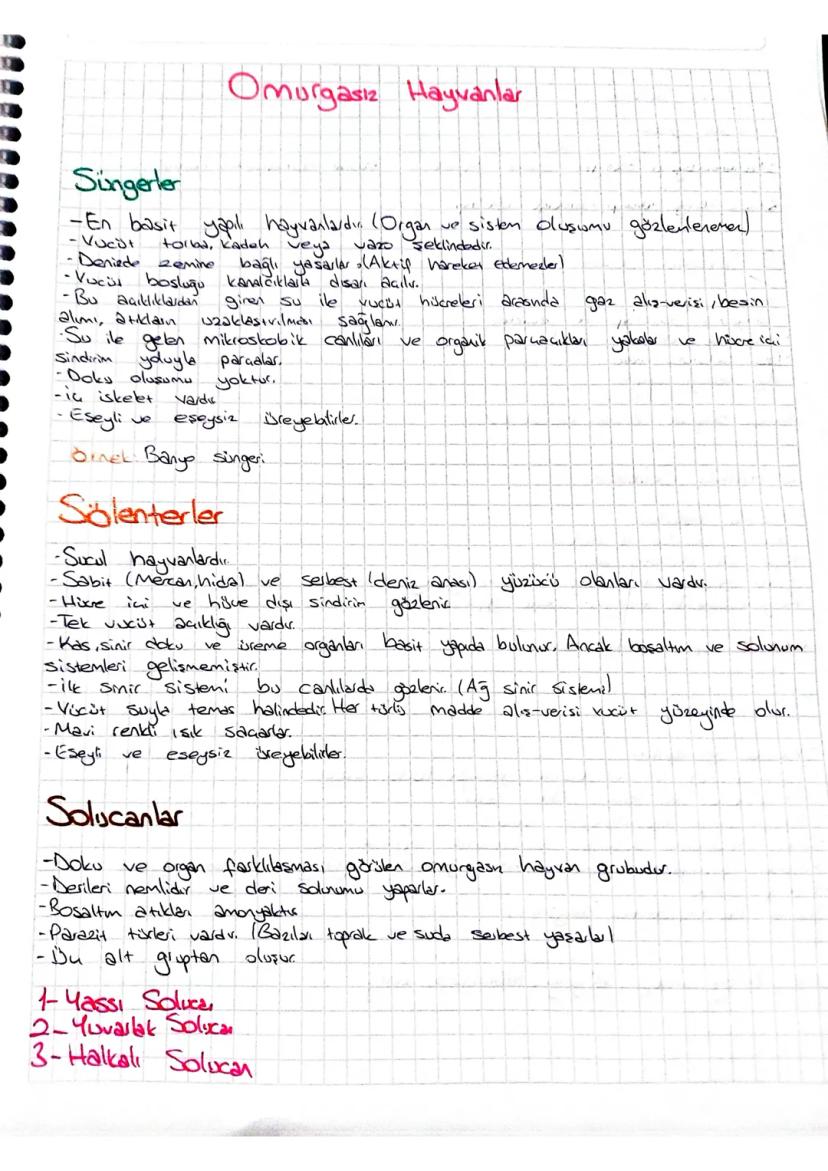 Omurgasız Hayvanlar
Süngerler
-En basit yapılı hayvanlardır. (Organ ve sistem oluşumu gözlenlenemez)
- Vücüt torba, kadeh veya vazo şeklindedir.
- Denizde zemine bağlı yaşarlar. (Aktif hareket edemezler)
- Vücüt boşluğu kanalcıklarla dışarı açılır.
-Bu açıklıklardan giren su ile vücüt hücreleri arasında gaz alış-verişi, besin
alımı, atıkların uzaklaştırılması sağlanır.
-Su ile gelen mikroskobik canlıları ve organik parçacıkları yakalar ve hücre içi
sindirim yoluyla parçalar.
- Doku oluşumu yoktur.
-iç iskelet vardır
- Eşeyli ve eşeysiz üreyebilirler.
Örnek: Banyo süngeri
Sölenterler
-Sucul hayvanlardır.
-Sabit (Mercan, hidra) ve serbest (deniz anası) yüzücü olanları vardır.
-Hücre içi ve hücre dışı sindirim gözlenir
-Tek vücüt açıklığı vardır.
-Kas, sinir doku ve üreme organları basit yapıda bulunur. Ancak boşaltım ve solunum
sistemleri gelişmemiştir.
-ilk sinir sistemi bu canlılarda gözlenir. (Ağ sinir sistemi)
-Vücüt suyla temas halindedir. Her türlü madde alış-verişi vücüt yüzeyinde olur.
-Mavi renkli ışık saçarlar.
-Eşeyli ve eşeysiz üreyebilirler.
Solucanlar
-Doku ve organ farklılaşması görülen omurgasız hayvan grubudur.
-Derileri nemlidir ve deri solunumu yaparlar.
-Boşaltım atıkları amonyaktır
-Parazit türleri vardır. (Bazıları toprak ve suda serbest yaşarlar)
- Üç alt gruptan oluşur
1-Yassı Solucan
2-Yuvarlak Solucan
3-Halkalı Solucan